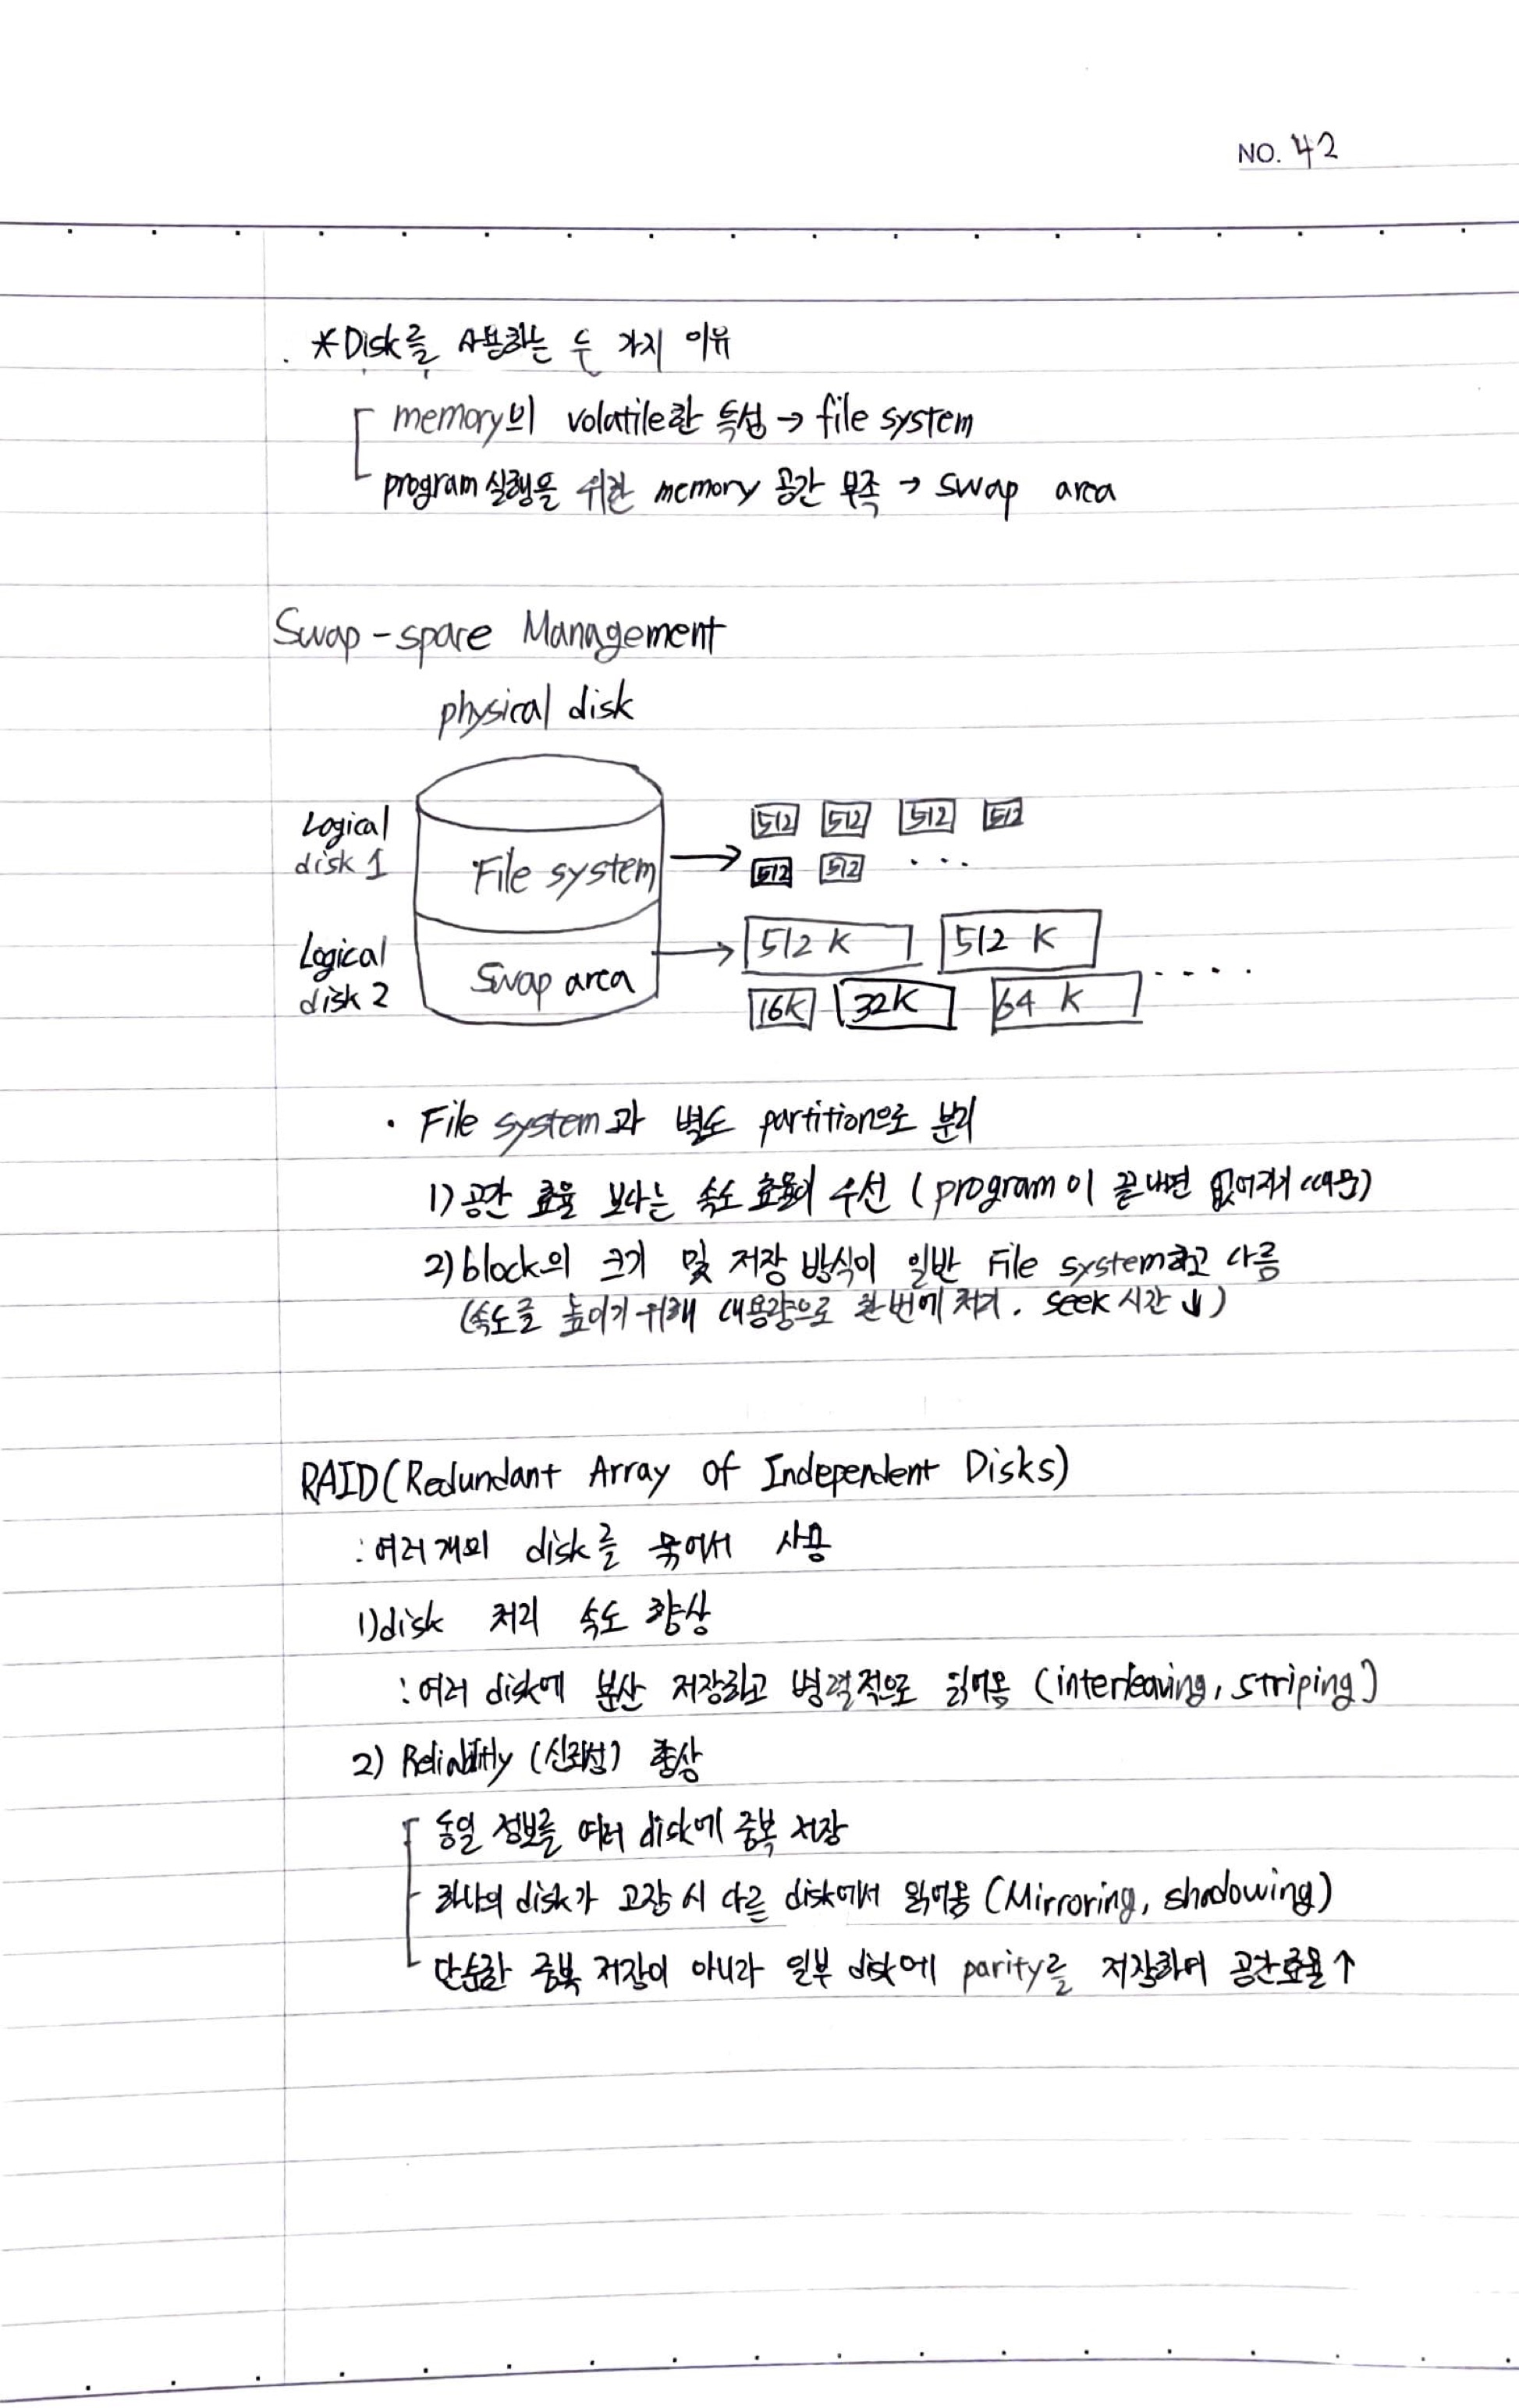 NO. 42
*Disk를 사용하는 두 가지 이유
memory의 volatile한 특성 → file system
program 실행을 위한 memory 공간 부족 → swap area
Swap-space Management
physical disk
Logical disk 1
File system
512 512 512 512
512 512 ...
Logical disk 2
Swap area
512 K 512 K
16K 32K 64 K ....
· File system과 별도 partition으로 분리
1) 공간 효율 보다는 속도 효율이 우선 (program이 끝나면 없어지기 때문)
2) block의 크기 및 저장 방식이 일반 File system하고 다름
(속도를 높이기 위해 대용량으로 한번에 처리. seek 시간 ↓)
RAID(Redundant Array of Independent Disks)
: 여러 개의 disk를 묶어서 사용
1) disk 처리 속도 향상
: 여러 disk에 분산 저장하고 병렬적으로 읽어옴 (interleaving, striping)
2) Reliability (신뢰성) 향상
동일 정보를 여러 disk에 중복 저장
하나의 disk가 고장 시 다른 disk에서 읽어옴 (Mirroring, shadowing)
단순한 중복 저장이 아니라 일부 disk에 parity를 저장하며 공간효율 ↑